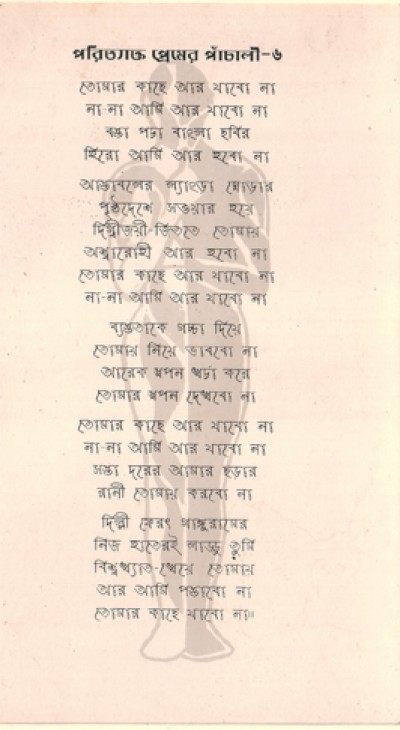 পরিত্যক্ত প্রেমের পাঁচালী-৬
তোমার কাছে আর যাবো না
না-না আমি আর যাবো না
বস্তা পচা বাংলা ছবির
হিরো আমি আর হবো না
আস্তাবলের ল্যাংড়া ঘোড়ার
পৃষ্ঠদেশে সওয়ার হয়ে
দিগ্বীজয়ী-জিততে তোমায়
অশ্বারোহী আর হবো না
তোমার কাছে আর যাবো না
না-না আমি আর যাবো না
ব্যস্ততাকে গচ্চা দিয়ে
তোমায় নিয়ে ভাববো না
আরেক স্বপন খর্চা করে
তোমার স্বপন দেখবো না
তোমার কাছে আর যাবো না
না-না আমি আর যাবো না
সস্তা দরের আমার ছড়ার
রানী তোমায় করবো না
দিল্লী ফেরৎ গঙ্গুরামের
নিজ হাতেরই লাড্ডু তুমি
বিশ্বখ্যাত-খেয়ে তোমায়
আর আমি পস্তাবো না
তোমার কাছে যাবো না॥